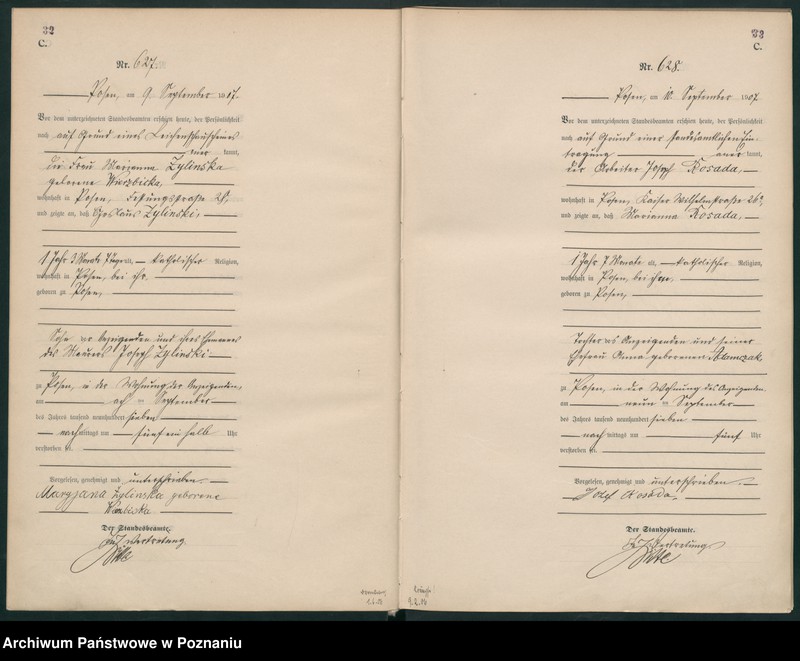 32
C.
Nr. 627.
Posen, am 9. September 1907.
Vor dem unterzeichneten Standesbeamten erschien heute, der Persönlichkeit
nach auf Grund eines Leichenschauscheines
kannt,
die Frau Marianna Zylinska
geborene
wohnhaft in Posen,
und zeigte an, daß Zylinski,
1 Jahr 3 Monate alt, katholischer Religion,
wohnhaft in Posen, bei ihr,
geboren zu Posen,
Sohn der Anzeigenden und ihres Ehemannes
des Maurers Joseph Zylinski
zu Posen, in der Wohnung der Anzeigenden,
am September
des Jahres tausend neunhundert sieben
nachmittags um fünf ein halb Uhr
verstorben sei.
Vorgelesen, genehmigt und unterschrieben
Zylinska geborene
Der Standesbeamte.
In Vertretung
33
C.
Nr. 628.
Posen, am 10. September 1907
Vor dem unterzeichneten Standesbeamten erschien heute, der Persönlichkeit
nach auf Grund einer standesamtlichen Ein-
tragung kannt,
der Arbeiter Joseph Rosada,
wohnhaft in Posen, Kaiser Wilhelmstraße
und zeigte an, daß Marianna Rosada,
1 Jahr 7 Monate alt, katholischer Religion,
wohnhaft in Posen, bei ihm,
geboren zu Posen,
Tochter des Anzeigenden und seiner
Ehefrau Anna geborenen Adamczak
zu Posen, in der Wohnung des Anzeigenden
am neun September
des Jahres tausend neunhundert sieben
nachmittags um fünf Uhr
verstorben sei.
Vorgelesen, genehmigt und unterschrieben
Józef Rosada.
Der Standesbeamte.
In Vertretung
Archiwum Państwowe w Poznaniu